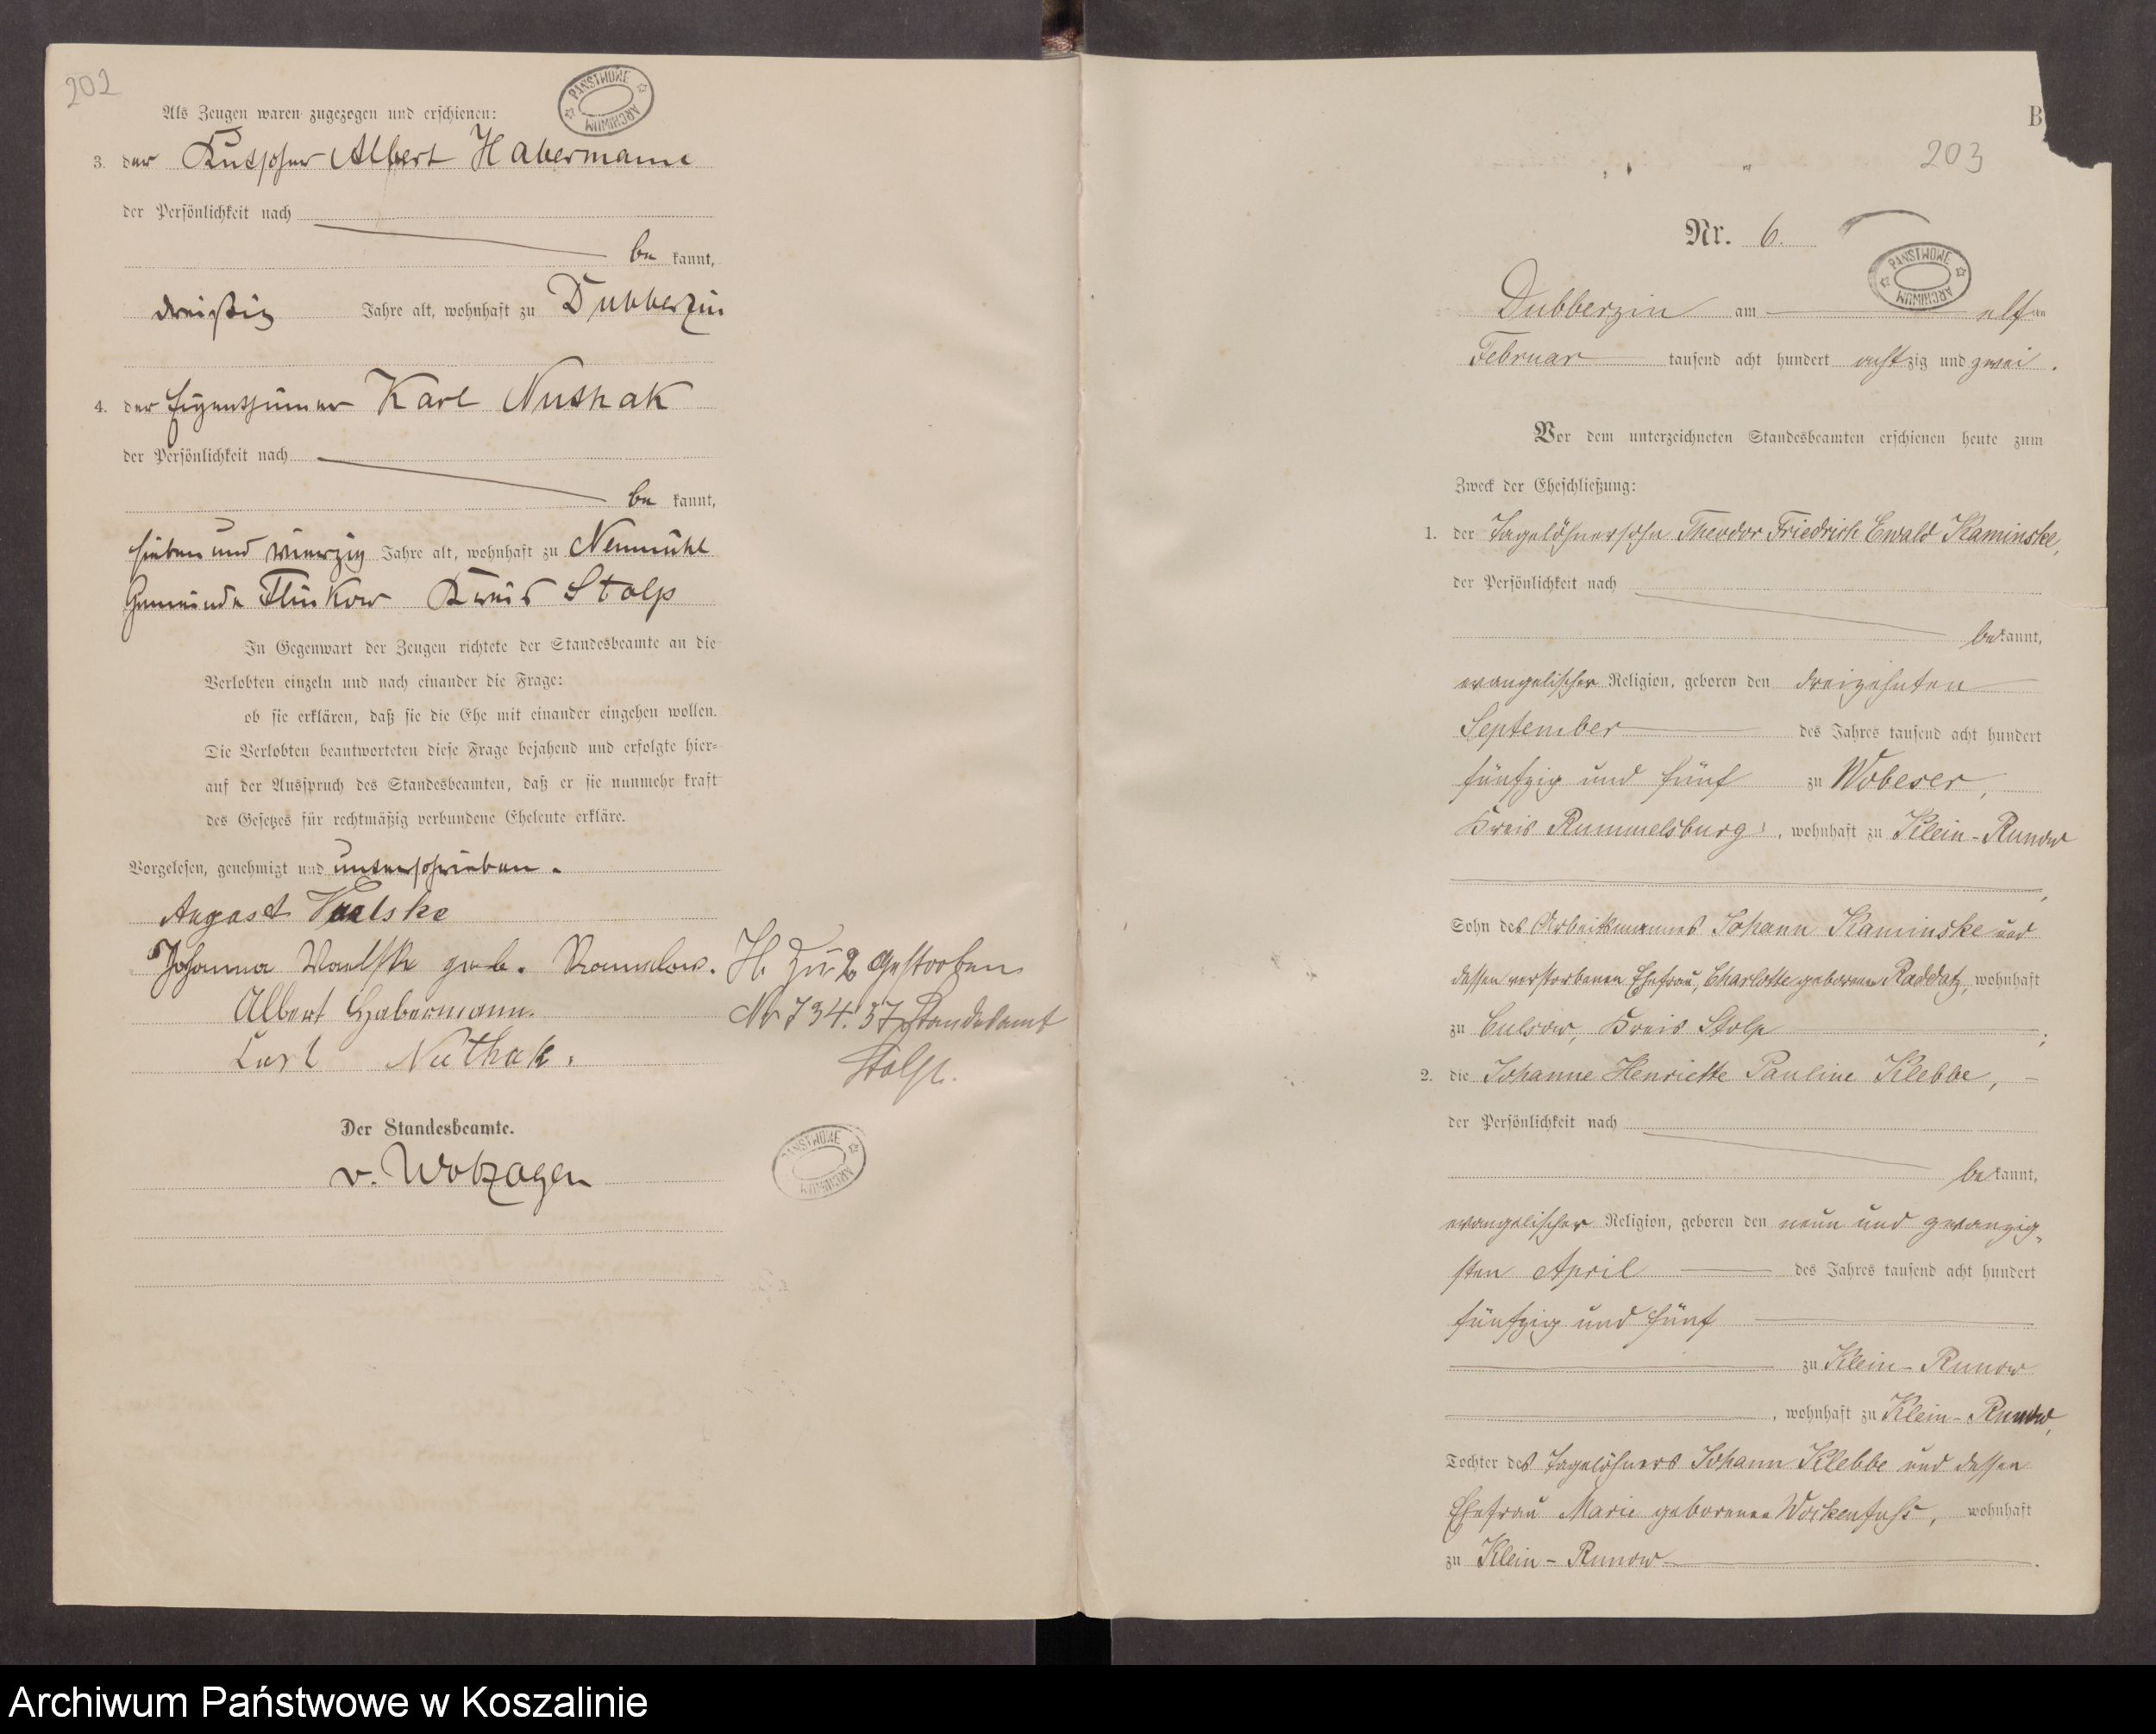 202
PAŃSTWOWE ARCHIWUM
Als Zeugen waren zugezogen und erschienen:
3. der Kutscher Albert Habermann
der Persönlichkeit nach
be kannt,
dreißig Jahre alt, wohnhaft zu Dubberzin
4. der Eigenthümer Karl Nuthak
der Persönlichkeit nach
be kannt,
sieben und vierzig Jahre alt, wohnhaft zu Neumühl
Gemeinde Flinkow Kreis Stolp
In Gegenwart der Zeugen richtete der Standesbeamte an die
Verlobten einzeln und nach einander die Frage:
ob sie erklären, daß sie die Ehe mit einander eingehen wollen.
Die Verlobten beantworteten diese Frage bejahend und erfolgte hier-
auf der Ausspruch des Standesbeamten, daß er sie nunmehr kraft
des Gesetzes für rechtmäßig verbundene Eheleute erkläre.
Vorgelesen, genehmigt und unterschrieben.
August
Johanna geb.
Albert Habermann.
Carl Nuthak.
H. Zu 2 gestorben
Nr 734.37 Standesamt
Stolp.
Der Standesbeamte.
v. Wobzagen
PAŃSTWOWE ARCHIWUM
B
203
Nr. 6.
PAŃSTWOWE ARCHIWUM
Dubberzin am elften
Februar tausend acht hundert achtzig und zwei.
Vor dem unterzeichneten Standesbeamten erschienen heute zum
Zweck der Eheschließung:
1. der Tagelöhnersohn Theodor Friedrich Ewald Kaminske,
der Persönlichkeit nach
be kannt,
evangelischer Religion, geboren den dreizehnten
September des Jahres tausend acht hundert
fünfzig und fünf zu Wobeser,
Kreis Rummelsburg, wohnhaft zu Klein-Runow
Sohn des Arbeitsmannes Johann Kaminske und
dessen verstorbenen Ehefrau, Charlotte geborenen Raddatz, wohnhaft
zu Culsow, Kreis Stolp;
2. die Johanne Henriette Pauline Klebbe,
der Persönlichkeit nach
be kannt,
evangelischer Religion, geboren den neun und zwanzig-
sten April des Jahres tausend acht hundert
fünfzig und fünf
zu Klein-Runow
, wohnhaft zu Klein-Runow,
Tochter des Tagelöhners Johann Klebbe und dessen
Ehefrau Marie geborenen Wockenfuß, wohnhaft
zu Klein-Runow.
Archiwum Państwowe w Koszalinie